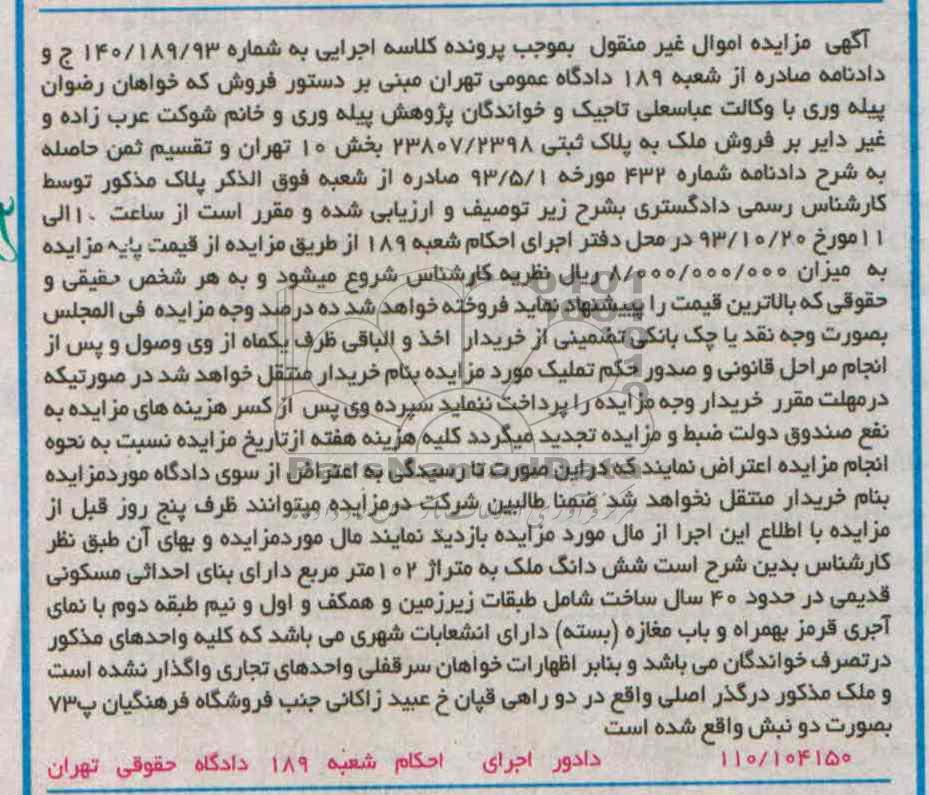 آگهی مزایده اموال غیر منقول بموجب پرونده کلاسه اجرایی به شماره ۱۴۰/۱۸۹/۹۳ ج و
دادنامه صادره از شعبه ۱۸۹ دادگاه عمومی تهران مبنی بر دستور فروش که خواهان رضوان
پیله وری با وکالت عباسعلی تاجیک و خواندگان پژوهش پیله وری و خانم شوکت عرب زاده و
غیر دایر بر فروش ملک به پلاک ثبتی ۲۳۸۰۷/۲۳۹۸ بخش ۱۰ تهران و تقسیم ثمن حاصله
به شرح دادنامه شماره ۴۳۲ مورخه ۹۳/۵/۱ صادره از شعبه فوق الذکر پلاک مذکور توسط
کارشناس رسمی دادگستری بشرح زیر توصیف و ارزیابی شده و مقرر است از ساعت ۱۰الی
۱۱مورخ ۹۳/۱۰/۲۰ در محل دفتر اجرای احکام شعبه ۱۸۹ از طریق مزایده از قیمت پایه مزایده
به میزان ۸/۰۰۰/۰۰۰/۰۰۰ ریال نظریه کارشناس شروع میشود و به هر شخص حقیقی و
حقوقی که بالاترین قیمت را پیشنهاد نماید فروخته خواهد شد ده درصد وجه مزایده فی المجلس
بصورت وجه نقد یا چک بانکی تضمینی از خریدار اخذ و الباقی ظرف یکماه از وی وصول و پس از
انجام مراحل قانونی و صدور حکم تملیک مورد مزایده بنام خریدار منتقل خواهد شد در صورتیکه
درمهلت مقرر خریدار وجه مزایده را پرداخت ننماید سپرده وی پس از کسر هزینه های مزایده به
نفع صندوق دولت ضبط و مزایده تجدید میگردد کلیه هزینه هفته ازتاریخ مزایده نسبت به نحوه
انجام مزایده اعتراض نمایند که دراین صورت تا رسیدگی به اعتراض از سوی دادگاه موردمزایده
بنام خریدار منتقل نخواهد شد ضمنا طالبین شرکت درمزایده میتوانند ظرف پنج روز قبل از
مزایده با اطلاع این اجرا از مال مورد مزایده بازدید نمایند مال موردمزایده و بهای آن طبق نظر
کارشناس بدین شرح است شش دانگ ملک به متراژ ۱۰۲متر مربع دارای بنای احداثی مسکونی
قدیمی در حدود ۴۰ سال ساخت شامل طبقات زیرزمین و همکف و اول و نیم طبقه دوم با نمای
آجری قرمز بهمراه و باب مغازه (بسته) دارای انشعابات شهری می باشد که کلیه واحدهای مذکور
درتصرف خواندگان می باشد و بنابر اظهارات خواهان سرقفلی واحدهای تجاری واگذار نشده است
و ملک مذکور درگذر اصلی واقع در دو راهی قپان خ عبید زاکانی جنب فروشگاه فرهنگیان پ۷۳
بصورت دو نبش واقع شده است
۱۱۰/۱۰۴۱۵۰ دادور اجرای احکام شعبه ۱۸۹ دادگاه حقوقی تهران